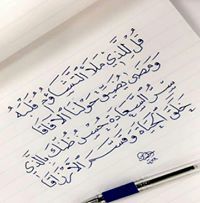 قُل للَّذِي مَلَأَ التَّشَاؤُمُ قَلْبَهُ
وَمَضَى يُضَيِّقُ حَوْلَنَا الآفَاقَا
سِرُّ السَّعَادَةِ حُسْنُ ظَنِّكَ بِالَّذِي
خَلَقَ الحَيَاةَ وَقَسَّمَ الأَرْزَاقَا